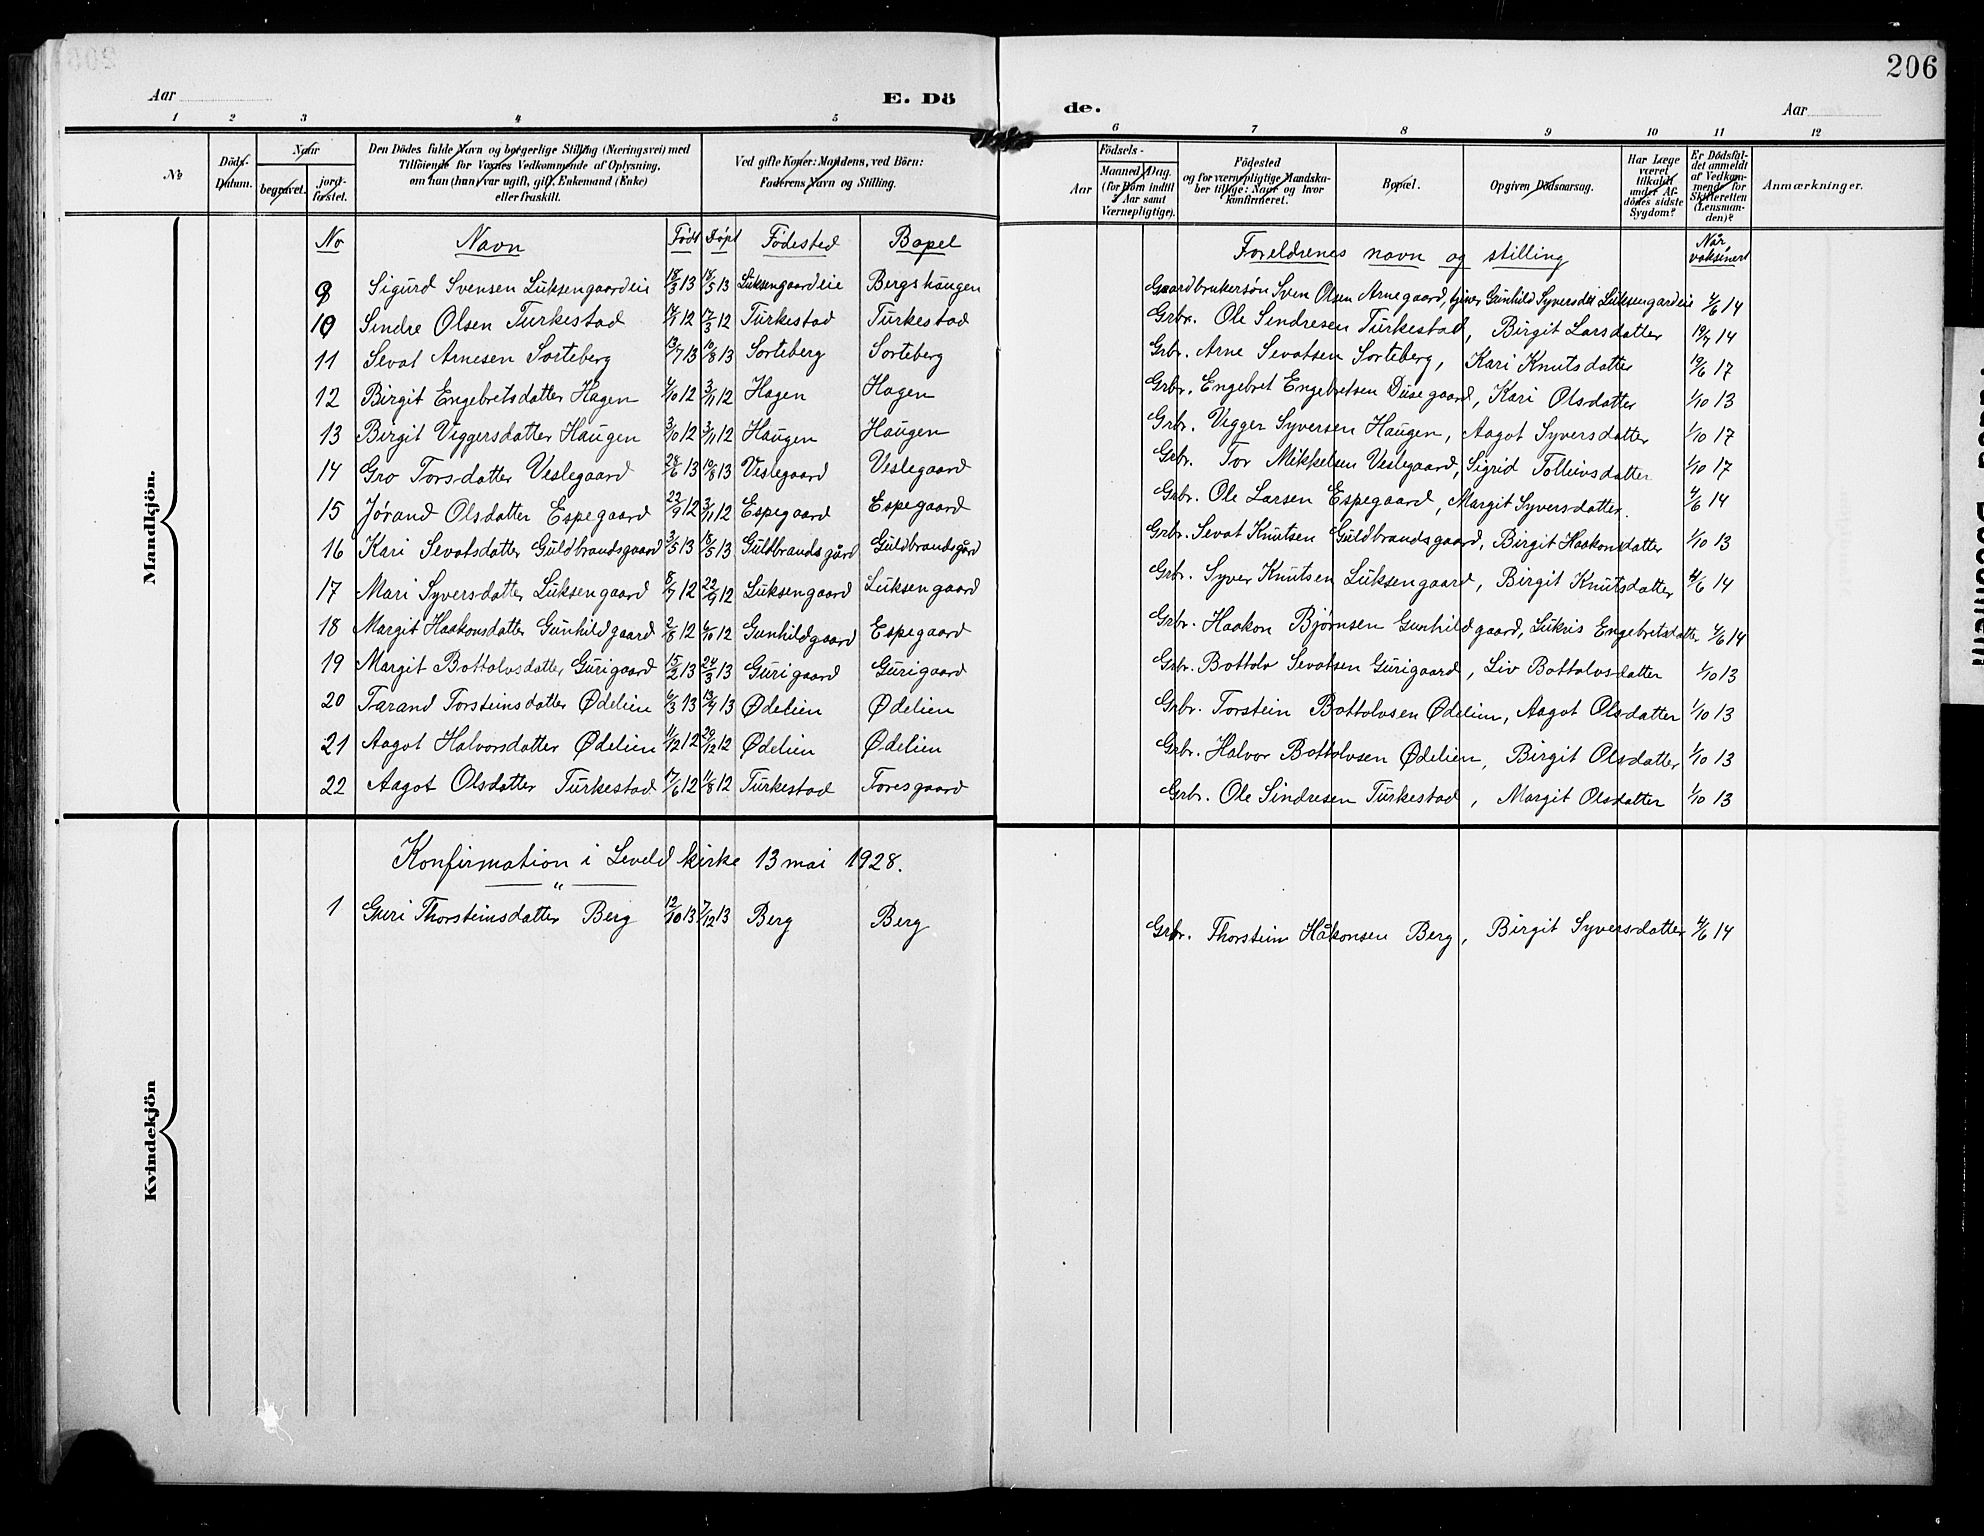 206
Aar
E. Dö
de.
Aar
1 2 3 4 5 6 7 8 9 10 11 12
No
Döds-Datum.
Naar
begravet.
jord-fæstet.
Den Dödes fulde Navn og borgerlige Stilling (Næringsvei) med
Tilföiende for Voxnes Vedkommende af Oplysning,
om han (hun) var ugift, gift, Enkemand (Enke)
eller fraskilt.
Ved gifte Koner: Mandens, ved Börn:
Faderens Navn og Stilling.
Födsels-
Aar
Maaned, Dag.
(for Börn indtil
2 Aar samt
Værnepligtige).
Födested
og for værnepligtige Mandska-
ber tillige: Naar og hvor
konfirmeret.
Bopæl.
Opgiven Dödsaarsag.
Har Læge
været
tilkaldt
under Af-
dödes sidste
Sygdom?
Er Dödsfal-
det anmeldt
af Vedkom-
mende for
Skifteretten
(Lensman-
den)?
Anmærkninger.
Mandkjön.
No Navn Født Døpt Fødested Bopel Foreldrenes navn og stilling Når vaksinert
9 Sigurd Svensen Luksengaardeie 18/3 13 18/5 13 Luksengaardeie Bergshaugen Gaardbrukersøn Sven Olsen Arnegaard, tjener Gunhild Syversdtr Luksengardeie 4/6 14
10 Sindre Olsen Turkestad 12 17/3 12 Turkestad Turkestad Grbr. Ole Sindresen Turkestad, Birgit Larsdatter 14
11 Sevat Arnesen Sorteberg 13/7 13 10/8 13 Sorteberg Sorteberg Grbr. Arne Sevatsen Sorteberg, Kari Knutsdatter 19/6 17
12 Birgit Engebretsdatter Hagen 4/10 12 3/11 12 Hagen Hagen Grbr. Engebret Engebretsen Dusegaard, Kari Olsdatter 1/10 13
13 Birgit Viggersdatter Haugen 3/10 12 3/11 12 Haugen Haugen Grbr. Vigger Syversen Haugen, Aagot Syversdatter 1/10 17
14 Gro Torsdatter Veslegaard 28/6 13 10/8 13 Veslegaard Veslegaard Grbr. Tor Mikkelsen Veslegaard, Sigrid Tollivsdatter 1/10 17
15 Jørand Olsdatter Espegaard 22/9 12 3/11 12 Espegaard Espegaard Grbr. Ole Larsen Espegaard, Margit Syversdatter. 4/6 14
16 Kari Sevatsdatter Guldbrandsgaard 3/5 13 18/5 13 Guldbrandsgård Guldbrandsgård Grbr. Sevat Knutsen Guldbrandsgaard, Birgit Haakonsdatter 1/10 13
17 Mari Syversdatter Luksengaard 8/7 12 22/9 12 Luksengaard Luksengaard Grbr. Syver Knutsen Luksengaard, Birgit Knutsdatter 4/6 14
18 Margit Haakonsdatter Gunhildgaard 2/8 12 6/10 12 Gunhildgaard Espegaard Grbr. Haakon Bjørnsen Gunhildgaard, Lukris Engebretsdatter 4/6 14
19 Margit Bottolvsdatter Gurigaard 15/2 13 24/3 13 Gurigaard Gurigaard Grbr. Bottolv Sevatsen Gurigaard, Liv Bottolvsdatter 1/10 13
20 Tarand Torsteinsdatter Ødelien 6/3 13 13/4 13 Ødelien Ødelien Grbr. Torstein Bottolvsen Ødelien, Aagot Olsdatter 1/10 13
21 Aagot Halvorsdatter Ødelien 11/12 12 29/12 12 Ødelien Ødelien Grbr. Halvor Bottolvsen Ødelien, Birgit Olsdatter 1/10 13
22 Aagot Olsdatter Turkestad 17/6 12 11/8 12 Turkestad Toresgaard Grbr. Ole Sindresen Turkestad, Margit Olsdatter 1/10 13
Kvindekjön
Konfirmation i Leveld kirke 13 mai 1928.
1 Guri Thorsteinsdatter Berg 12/10 13 7/12 13 Berg Berg Grbr. Thorstein Håkonsen Berg, Birgit Syversdatter 4/6 14